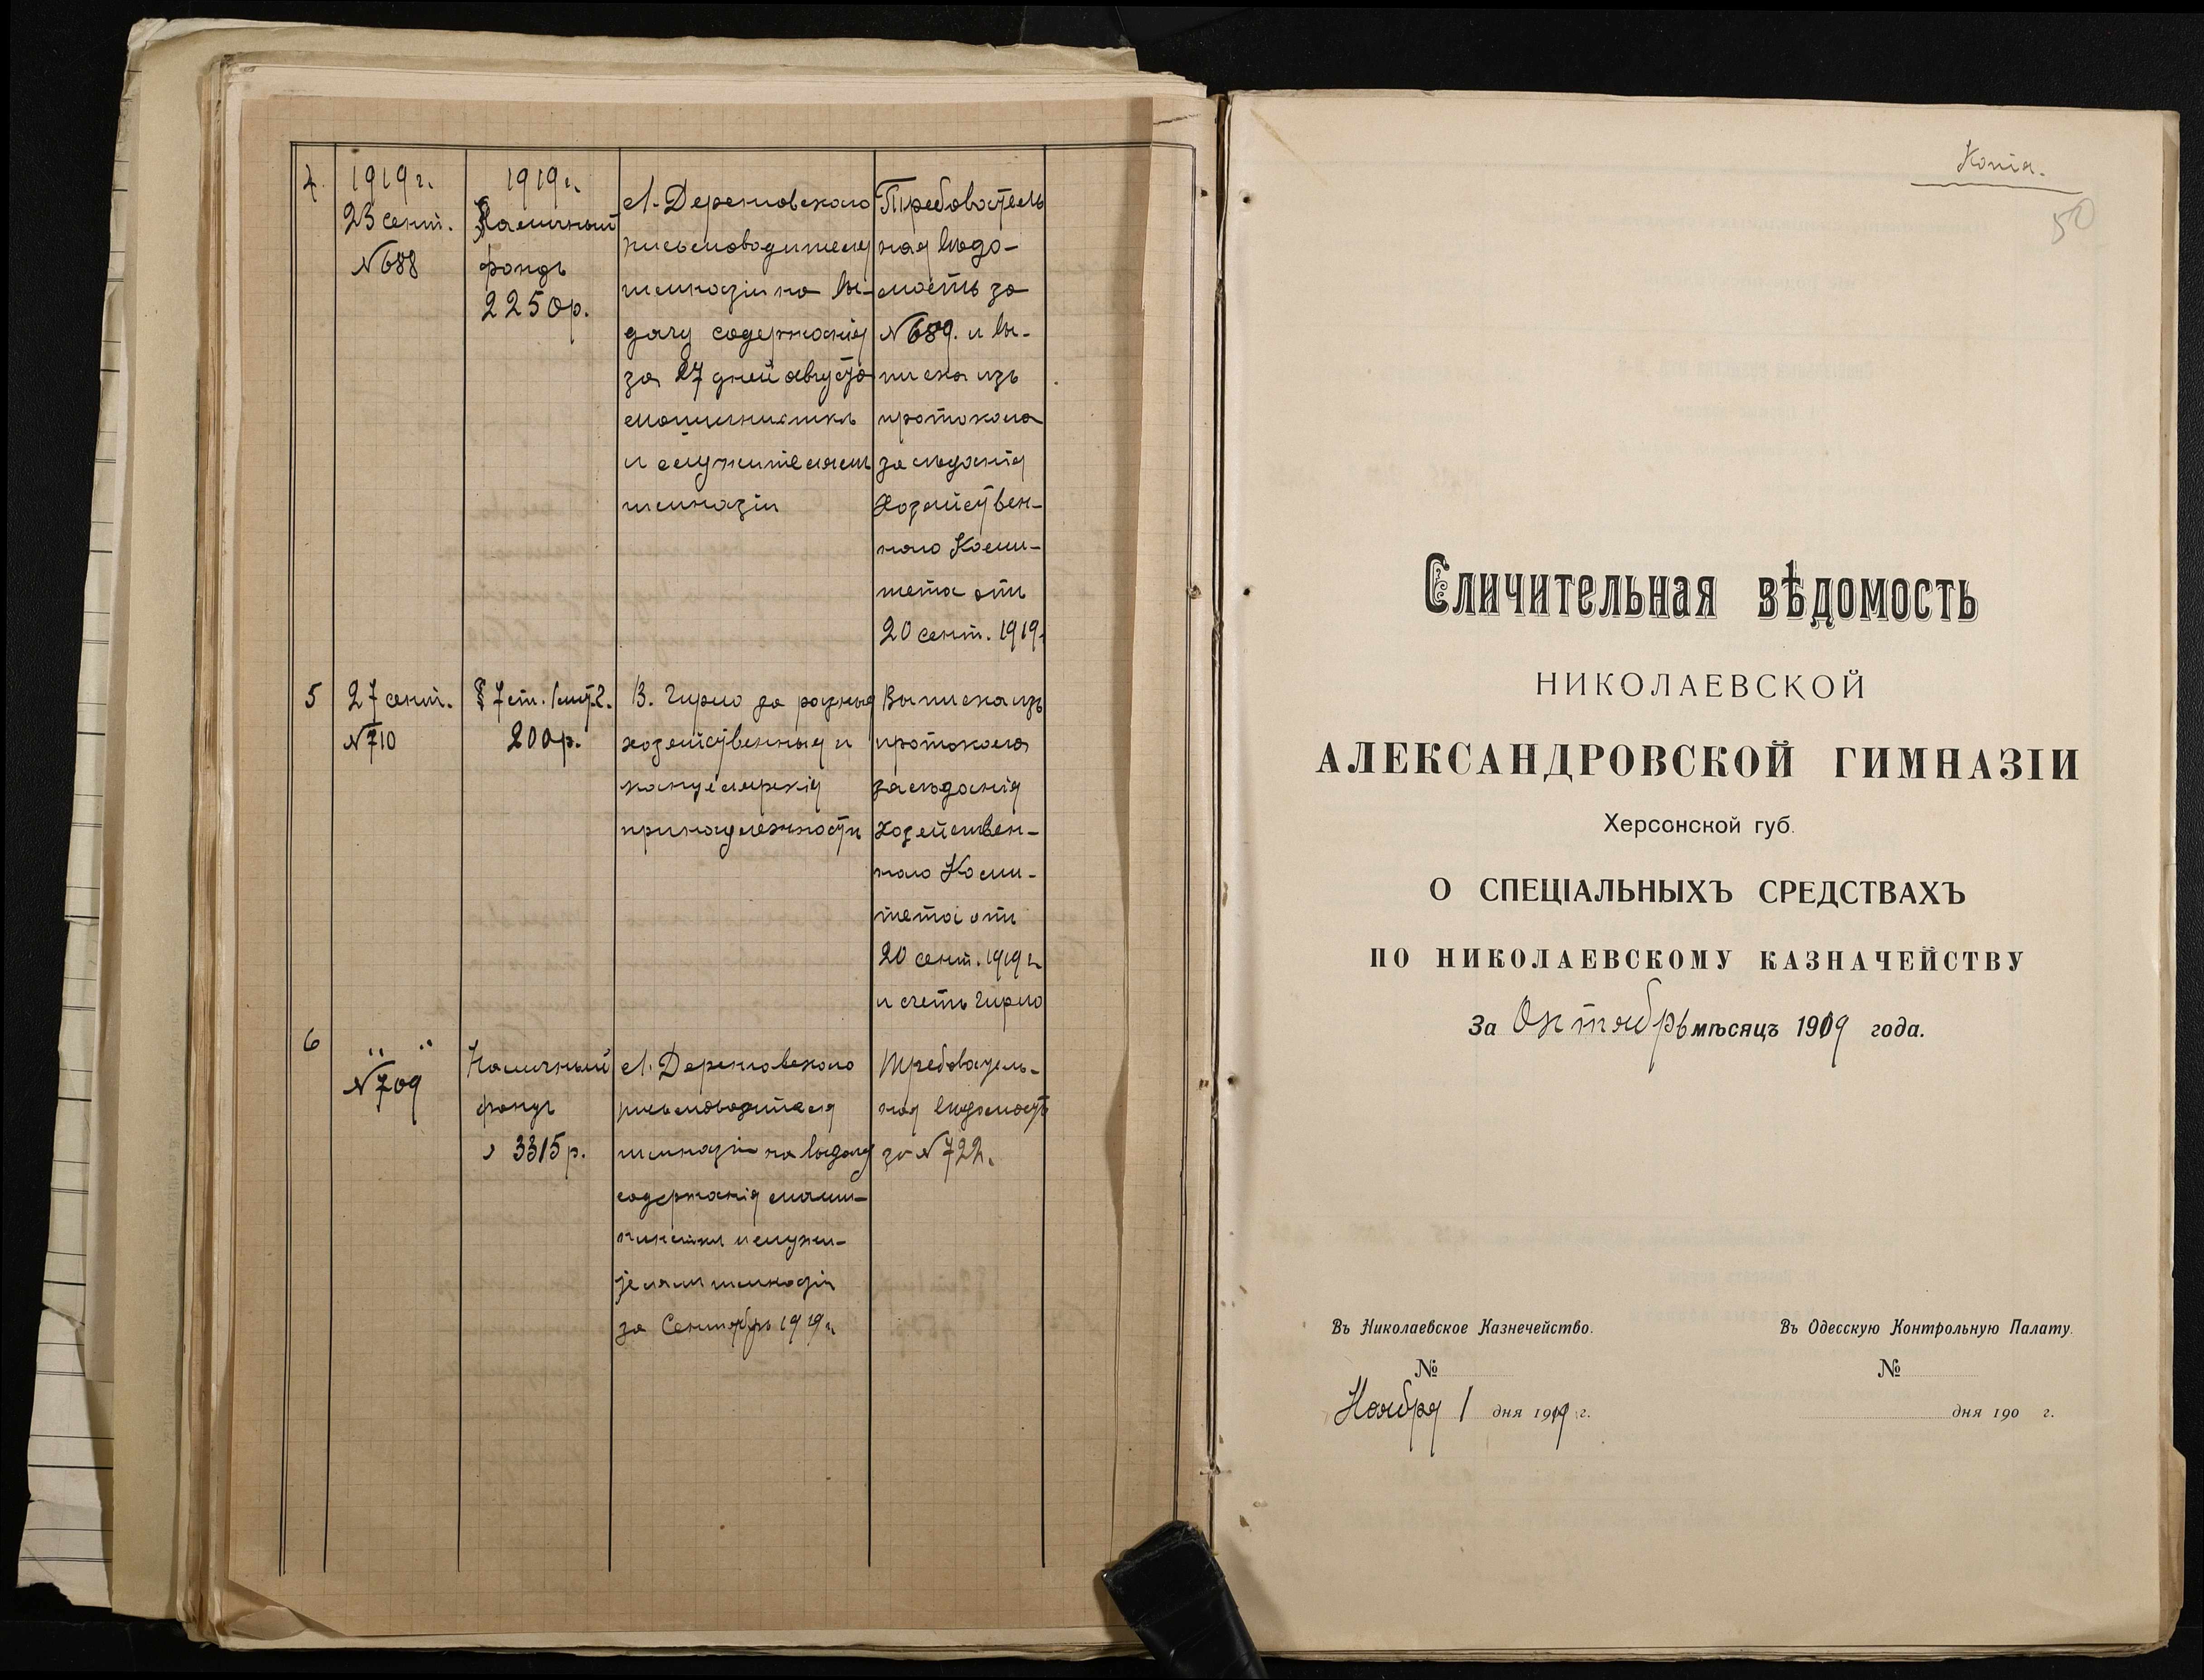 4.
1919 г.
23 сент.
№ 688
1919 г.
Наличный
фондъ
2250 р.
Л. Дерешовскаго
письмоводителю
гимназіи на вы-
дачу содержанія
за 27 дней августа
машинисткѣ
и служителямъ
гимназіи
Требователь
ная вѣдо-
мость за
№ 689. и вы-
писка изъ
протокола
засѣданія
Хозяйствен-
наго Коми-
тета отъ
20 сент. 1919.
5
27 сент.
№ 710
§ 7 ст. 1
200 р.
В. Гирло за разныя
хозяйственныя и
канцелярскія
принадлежности
Выписка изъ
протокола
засѣданія
Хозяйствен-
наго Коми-
тета отъ
20 сент. 1919 г.
и счетъ Гирло
6
" "
№ 709
Наличный
фондъ
3315 р.
Л. Дерешовскаго
письмоводителя
гимназіи на выдачу
содержанія маши-
нисткѣ и служи-
телямъ гимназіи
за Сентябрь 1919 г.
Требователь-
ная вѣдомость
за № 722.
Копія.
50
Сличительная вѣдомость
НИКОЛАЕВСКОЙ
АЛЕКСАНДРОВСКОЙ ГИМНАЗІИ
Херсонской губ.
О СПЕЦІАЛЬНЫХЪ СРЕДСТВАХЪ
ПО НИКОЛАЕВСКОМУ КАЗНАЧЕЙСТВУ
За Октябрь мѣсяцъ 1919 года.
Въ Николаевское Казнечейство.
№
Ноября 1 дня 1919 г.
Въ Одесскую Контрольную Палату.
№
дня 190 г.